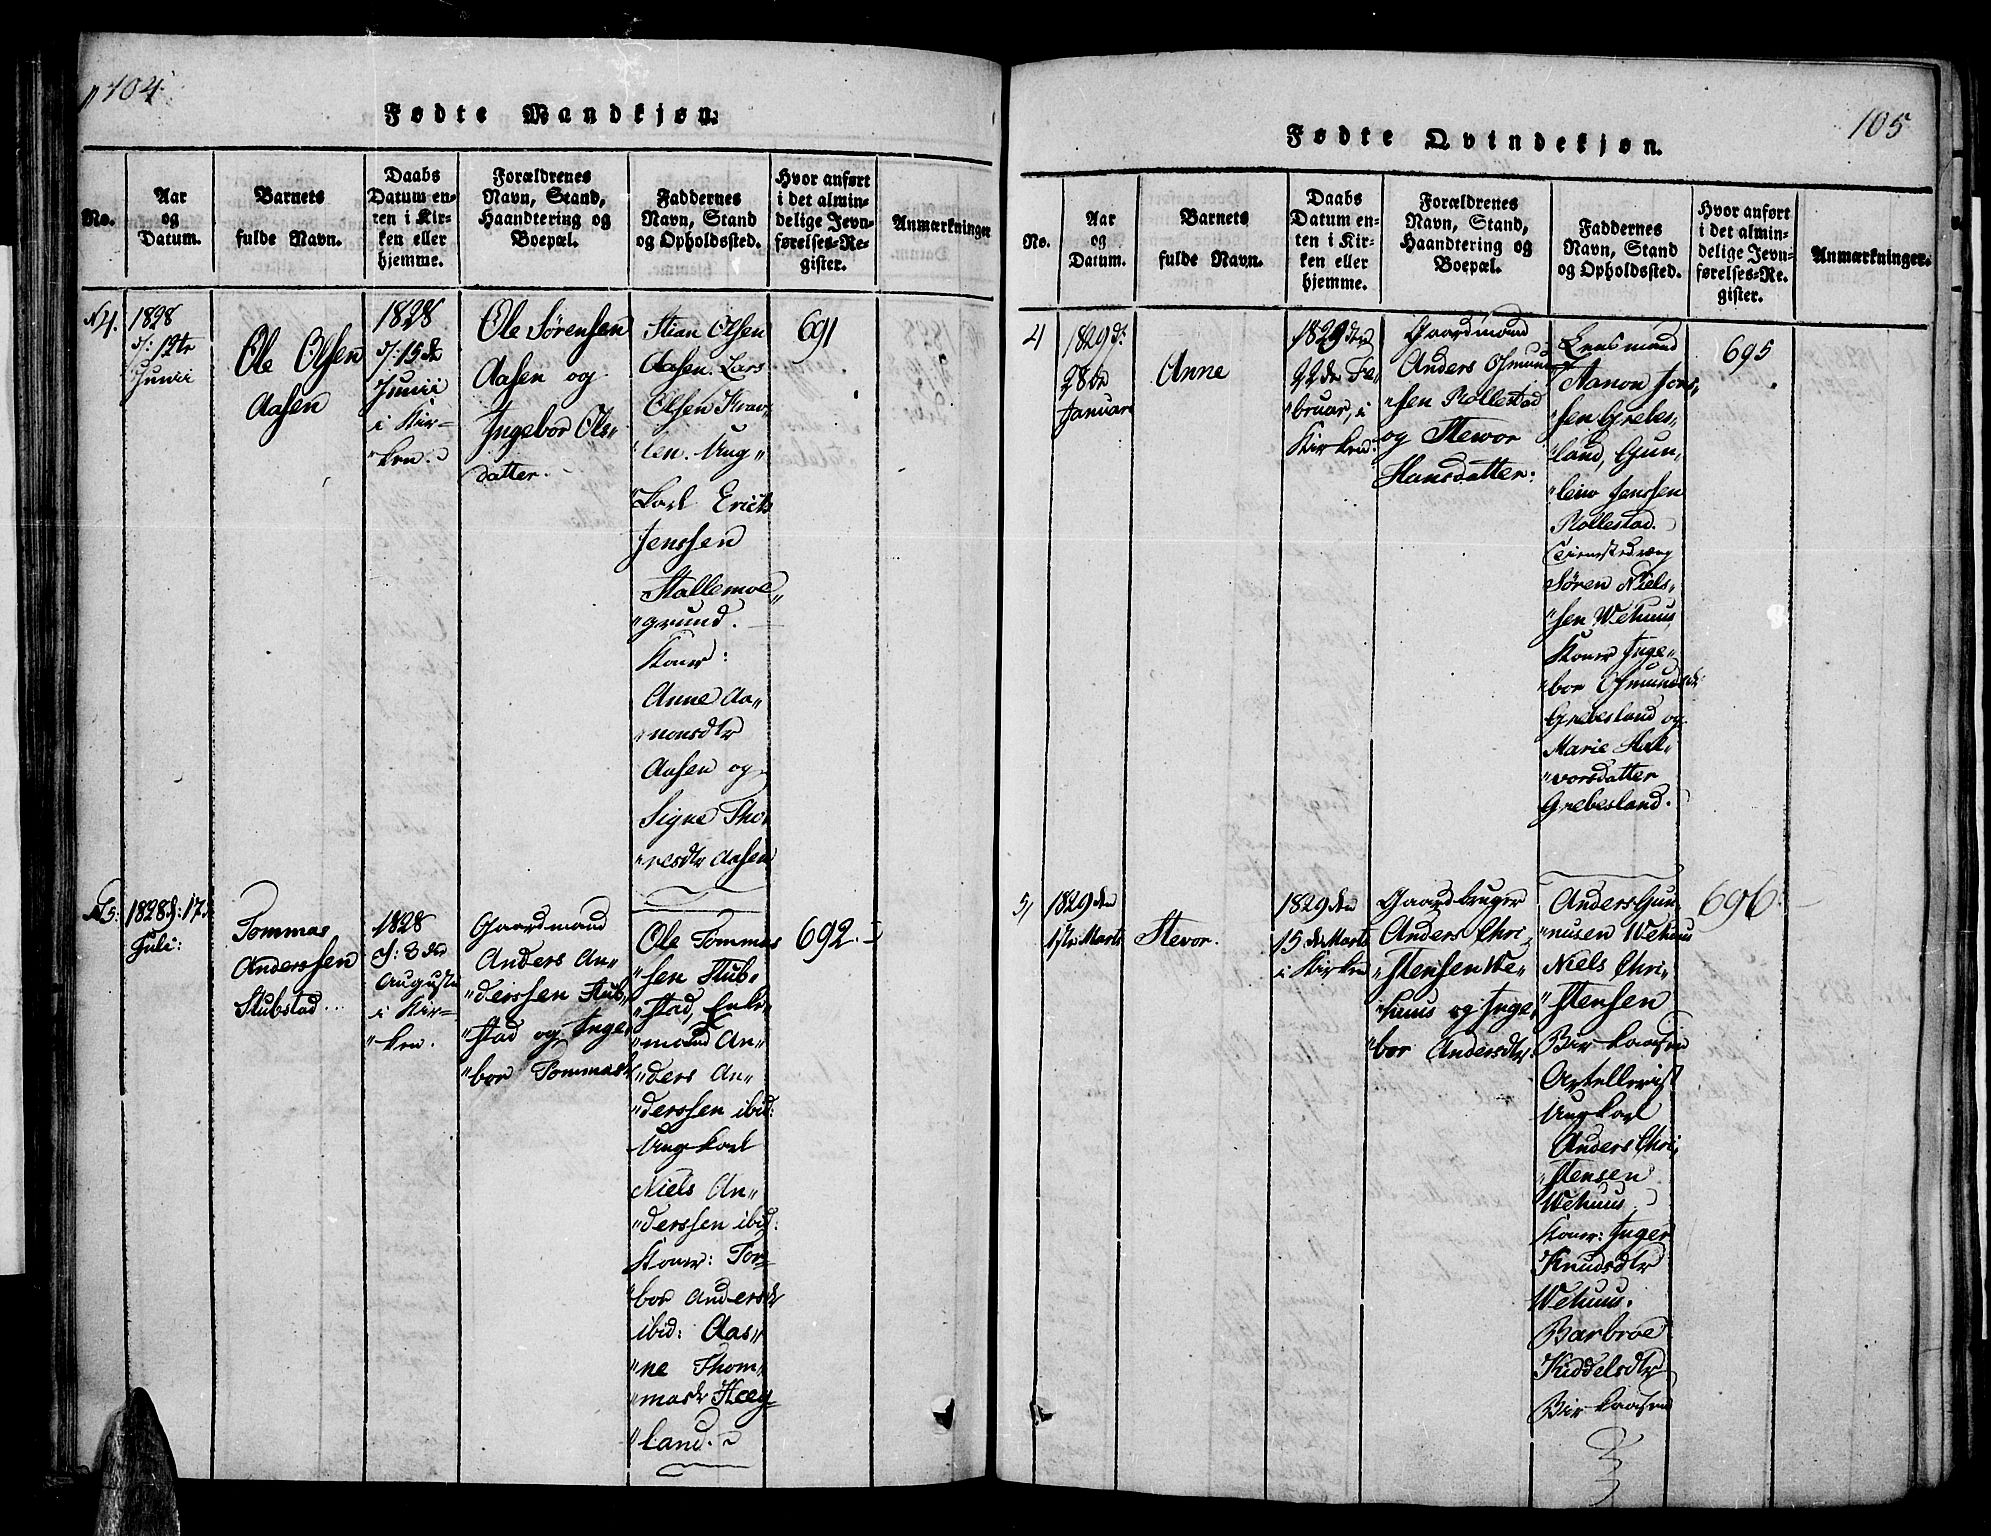 104.
Fødte Mandkjøn.
No.
Aar
og
Datum.
Barnets
fulde Navn.
Daabs
Datum en-
ten i Kir-
ken eller
hjemme.
Forældrenes
Navn, Stand,
Haandtering og
Boepæl.
Faddernes
Navn, Stand
og Opholdssted.
Hvor anført
i det almin-
delige Jevn-
førelses-Re-
gister.
Anmærkninger
N4.
1828
d: 12te
Junii
Ole Olsen
Aasen
1828
d: 15de
Junii
i Kir-
ken.
Ole Sørensen
Aasen og
Ingebor Ols-
datter.
Stian Olsen
Aasen. Lars
Olsen
Ung-
karl Erick
Jenssen
Stallemoe-
grund.
Koner:
Anne Aa-
nonsdtr
Aasen og
Signe Tho-
resdtr Aasen
691
N5:
1828 d: 17.
Juli:
Tommas
Anderssen
Stubstad.
1828
d: 3die
Augusti
i Kir-
ken.
Gaardmand
Anders An-
derssen Stub-
stad og Inge-
bor Tommasdr
Ole Tommas-
sen Stub-
stad, Enke-
mand An-
ders An-
derssen ibid:
Ungkarl
Niels An-
derssen ibid:
Koner: Tor-
bor Andersdr
ibid: Aas-
ne Thom-
masdr Hæg-
land.
692.
105
Fødte Qvindekjøn.
No.
Aar
og
Datum.
Barnets
fulde Navn.
Daabs
Datum en-
ten i Kir-
ken eller
hjemme.
Forældrenes
Navn, Stand,
Haandtering og
Boepæl.
Faddernes
Navn, Stand
og Opholdssted.
Hvor anført
i det almin-
delige Jevn-
førelses-Re-
gister.
Anmærkninger.
4
1829 d:
28de
Januari
Anne
1829 den
22de Fe-
bruar, i
Kirken.
Gaardmand
Anders Osmund-
sen Rollestad
og Stevor
Hansdatter:
Lensmand
Aanon Jons-
sen Grebes-
land, Gun-
leiv Jenssen
Rollestad.
Tienestedræng
Søren Niels-
sen Wehuus
Koner Inge-
bor Osmundsdr
Grebesland og
Marie Hal-
vorsdatter
Grebesland.
695
5,
1829 den
1ste Marti
Stevor.
1829 den
15de Marti
i Kirken
Gaardbruger
Anders Chri-
stensen We-
huus og Inge-
bor Andersdtr.
Anders Gun-
nusen Wehuus
Niels Chri-
stensen
Birkaasen
Artellerist
Ungkarl
Anders Chri-
stensen
Wehuus.
Koner: Inger
Knudsdtr
Wehuus.
Barbroe
Kiddelsdtr
Birkaasen
696.